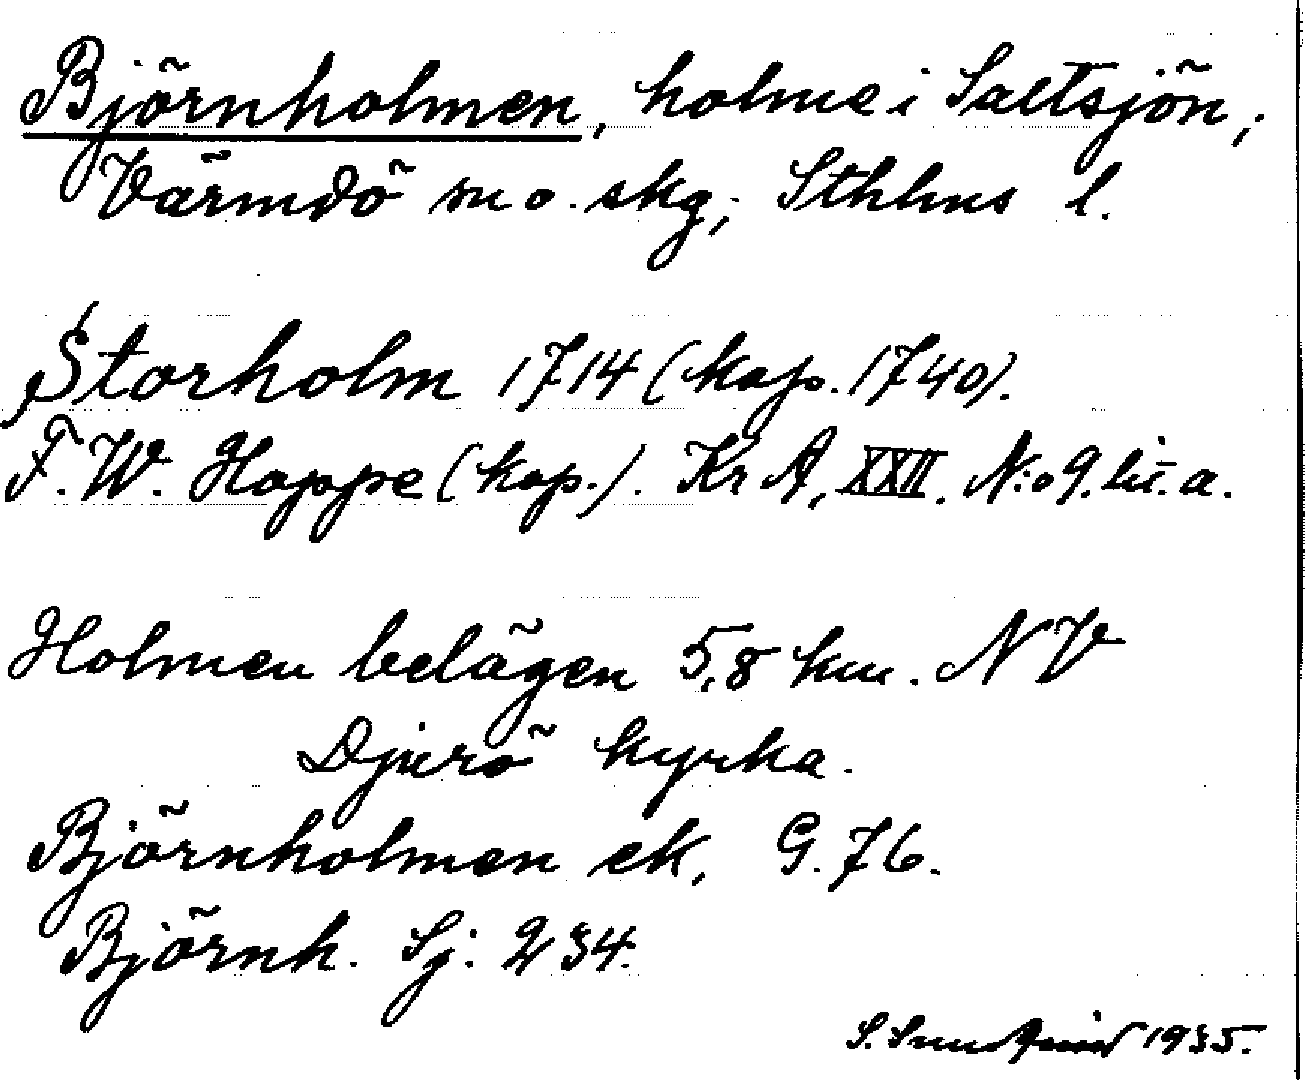 Björnholmen, holme i Saltsjön;
Värmdö sn o. skg; Sthlms l.
Storholm 1714 (kop. 1740).
F. W. Hoppe (kop.). KrA, XXII. N:o 9. lit. a.
Holmen belägen 5,8 km. NV
Djurö kyrka.
Björnholmen ek, G. 76.
Björnh. Sj: 234.
S. 1935.